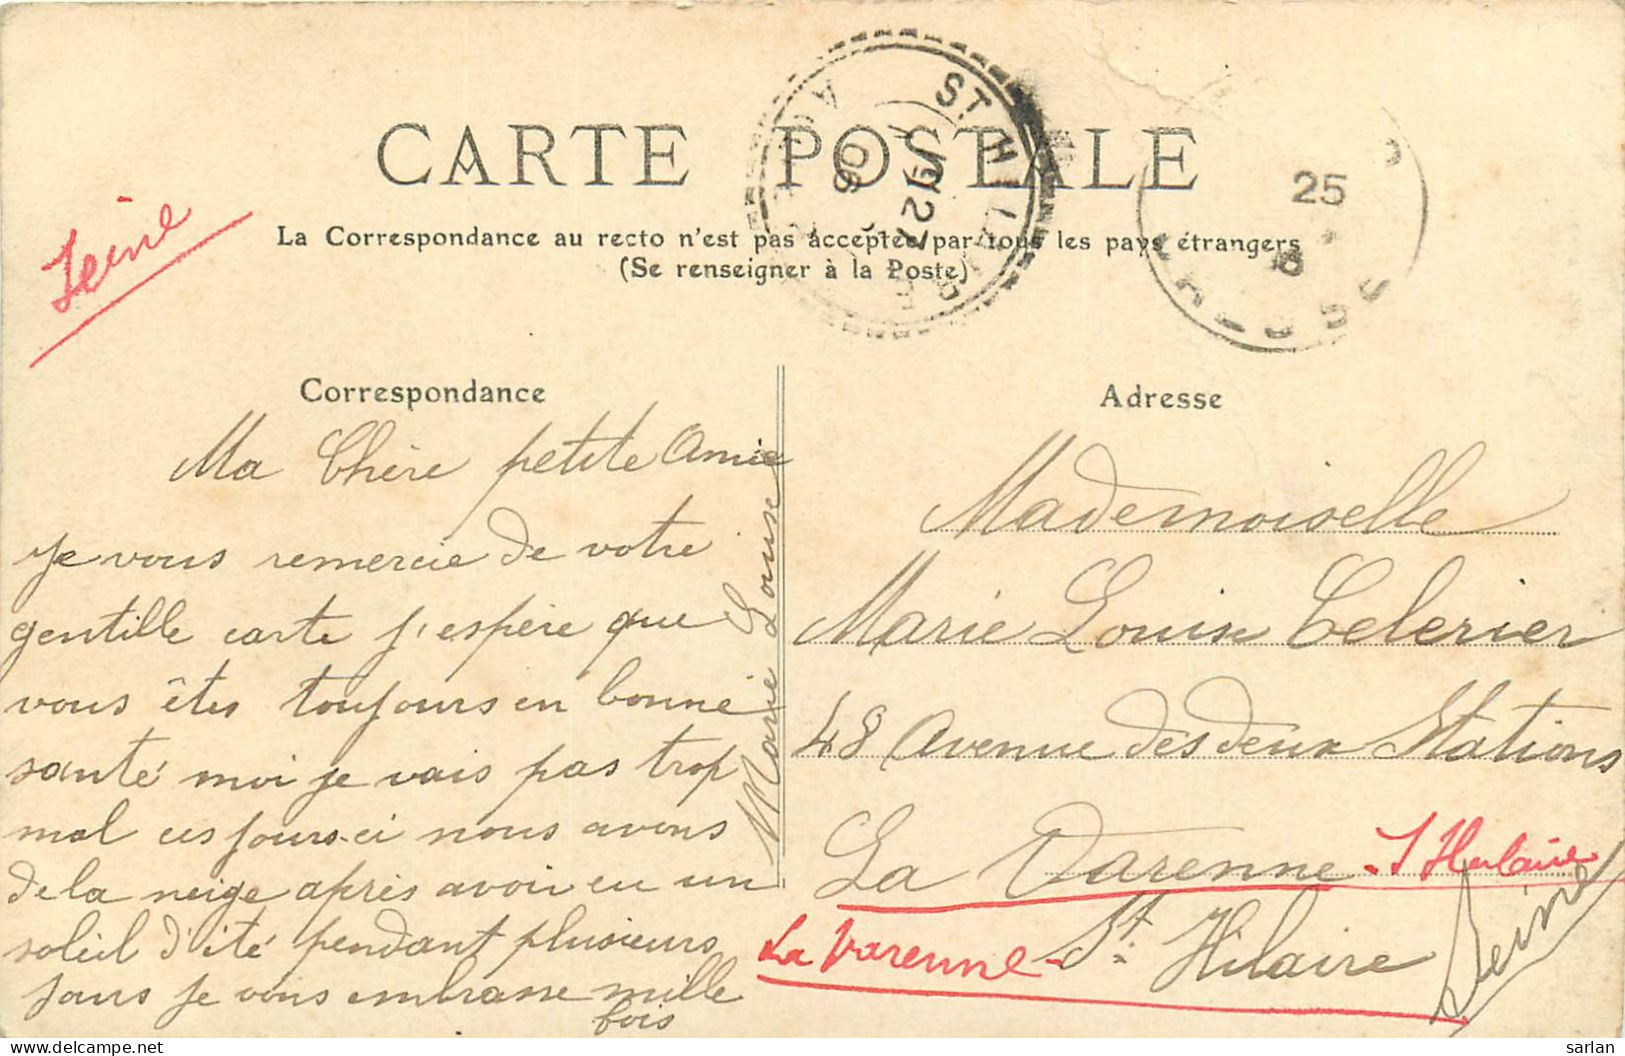 CARTE POSTALE
La Correspondance au recto n'est pas acceptée par tous les pays étrangers
(Se renseigner à la Poste)
Seine
ST HILAIRE
27
06
25
Correspondance
Ma Chère petite Amie
je vous remercie de votre
gentille carte j'espère que
vous êtes toujours en bonne
santé moi je vais pas trop
mal ces jours-ci nous avons
de la neige après avoir eu un
soleil d'été pendant plusieurs
jours je vous embrasse mille
fois
Marie Louise
Adresse
Mademoiselle
Marie Louise Celerier
48 Avenue des deux Stations
La Varenne - St Hilaire
La Varenne - St. Hilaire
Seine
sarlan